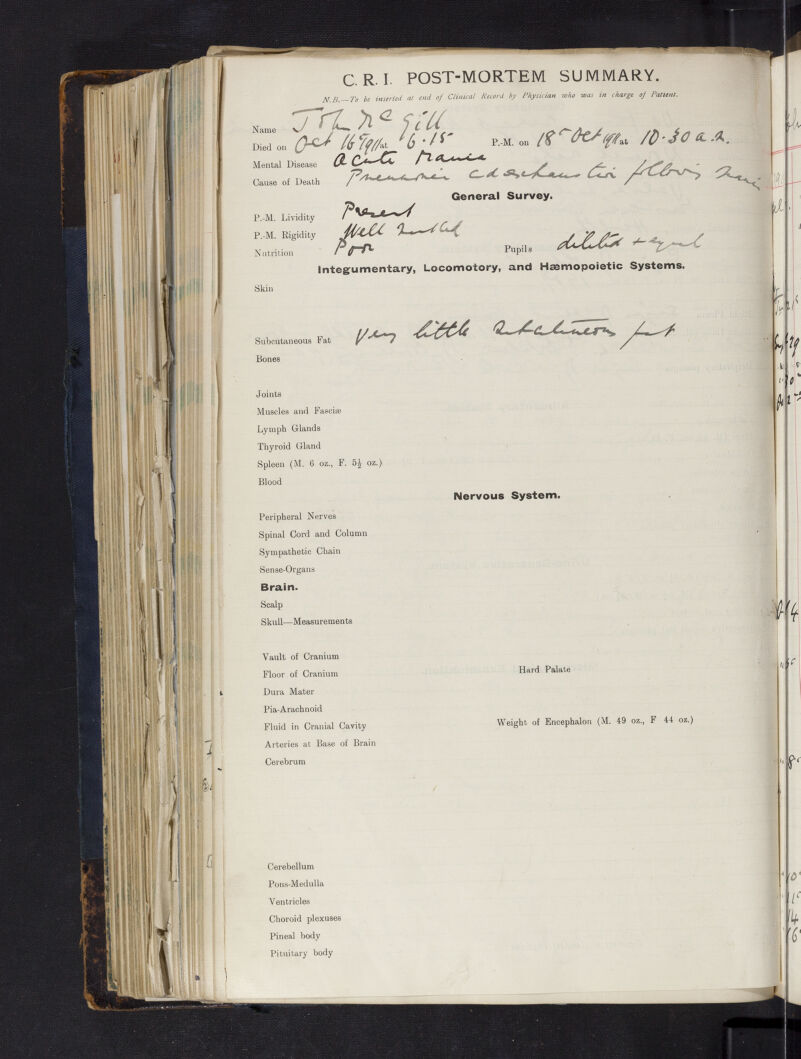 C. R. I. POST-MORTEM SUMMARY.
N.B.—To be inserted at end of Clinical Record by Physician who was in charge of Patient.
Name John McGill
Died on Oct 16th 1911 at 6.15 P.-M. on 18th Oct 1911 at 10.30 a.m.
Mental Disease Acute Mania
Cause of Death Pneumonia and exhaustion following Mania
General Survey.
P.-M. Lividity Present
P.-M. Rigidity Well marked
Nutrition Poor Pupils dilated + equal
Integumentary, Locomotory, and Hæmopoietic Systems.
Skin
Subcutaneous Fat Very little subcutaneous fat
Bones
Joints
Muscles and Fasciæ
Lymph Glands
Thyroid Gland
Spleen (M. 6 oz., F. 5½ oz.)
Blood
Nervous System.
Peripheral Nerves
Spinal Cord and Column
Sympathetic Chain
Sense-Organs
Brain.
Scalp
Skull—Measurements
Vault of Cranium
Floor of Cranium Hard Palate
Dura Mater
Pia-Arachnoid
Fluid in Cranial Cavity Weight of Encephalon (M. 49 oz., F 44 oz.)
Arteries at Base of Brain
Cerebrum
Cerebellum
Pons-Medulla
Ventricles
Choroid plexuses
Pineal body
Pituitary body